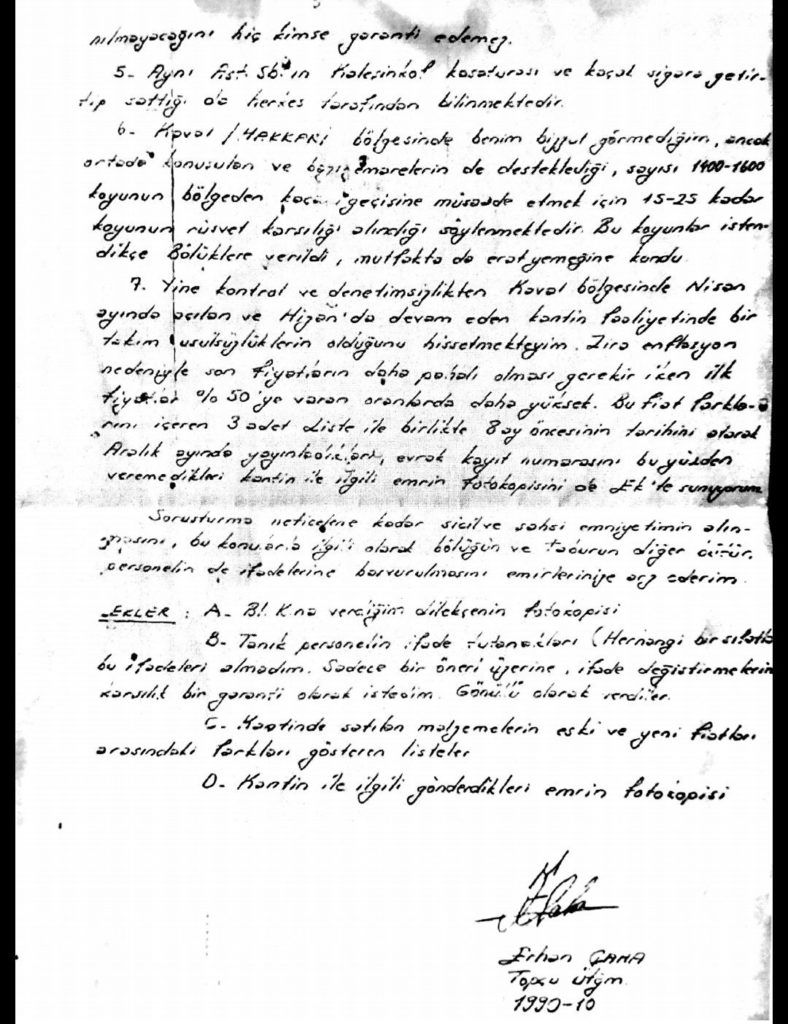 nılmayacağını hiç kimse garanti edemez.
5- Aynı Ast.Sb.'ın Kaleşinkof kasaturası ve kaçak sigara getir-
tip sattığı da herkes tarafından bilinmektedir.
6- Kaval / HAKKARİ bölgesinde benim bizzat görmediğim, ancak
ortada konuşulan ve bazı emarelerin de desteklediği, sayısı 1400-1600
koyunun bölgeden kaçak geçişine müsaade etmek için 15-25 kadar
koyunun rüşvet karşılığı alındığı söylenmektedir. Bu koyunlar isten-
dikçe Bölüklere verildi, mutfakta da erat yemeğine kondu
7. Yine kontrol ve denetimsizlikten Kaval bölgesinde Nisan
ayında açılan ve Hizan'da devam eden kantin faaliyetinde bir
takım usulsüzlüklerin olduğunu hissetmekteyim. Zira enflasyon
nedeniyle son fiyatların daha pahalı olması gerekir iken ilk
fiyatlar %50'ye varan oranlarda daha yüksek. Bu fiat farkla-
rını içeren 3 adet Liste ile birlikte 8 ay öncesinin tarihini atarak
Aralık ayında yayınladıkları, evrak kayıt numarasını bu yüzden
veremedikleri kantin ile ilgili emrin fotokopisini de Ek'te sunuyorum
Soruşturma neticelene kadar sicil ve şahsi emniyetimin alın-
masını, bu konularla ilgili olarak bölüğün ve taburun diğer bütün
personelin de ifadelerine başvurulmasını emirlerinize arz ederim.
EKLER : A- Bl. K.na verdiğim dilekçenin fotokopisi
B- Tanık personelin ifade tutanakları (Herhangi bir sıfatla
bu ifadeleri almadım. Sadece bir öneri üzerine, ifade değiştirmelerin
karşılık bir garanti olarak istedim. Gönüllü olarak verdiler.
C- Kantinde satılan malzemelerin eski ve yeni fiatları
arasındaki farkları gösteren listeler
D- Kantin ile ilgili gönderdikleri emrin fotokopisi
Erhan
Topçu Ütğm.
1990-10